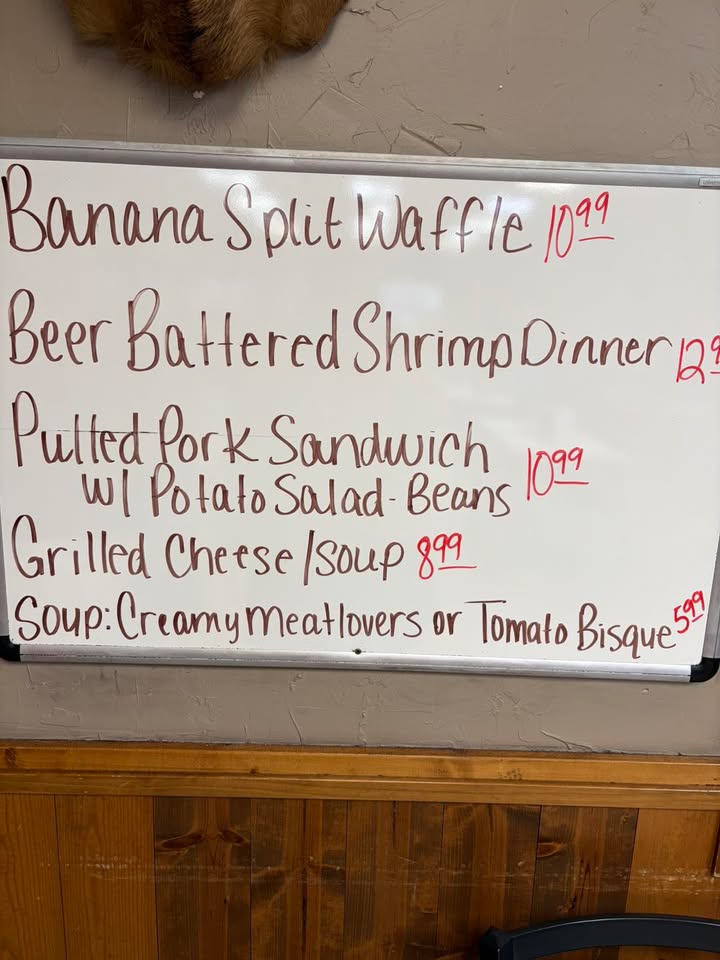 Banana Split Waffle 10 99
Beer Battered Shrimp Dinner 12 9
Pulled Pork Sandwich
w/ Potato Salad - Beans 10 99
Grilled Cheese / Soup 8 99
Soup: Creamy Meatlovers or Tomato Bisque 5 99